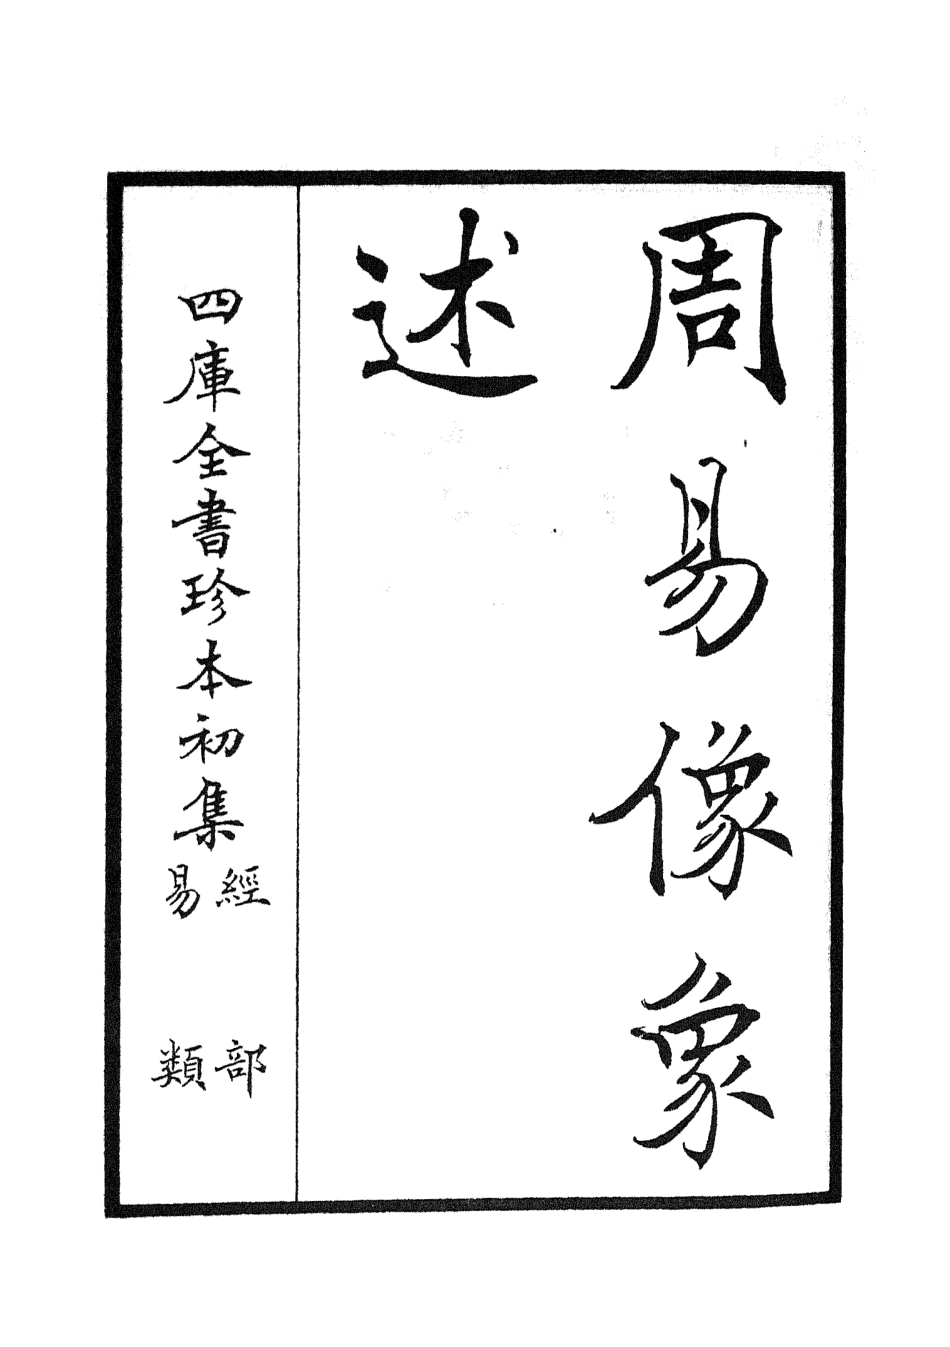 周易像象
述
四庫全書珍本初集
經部
易類